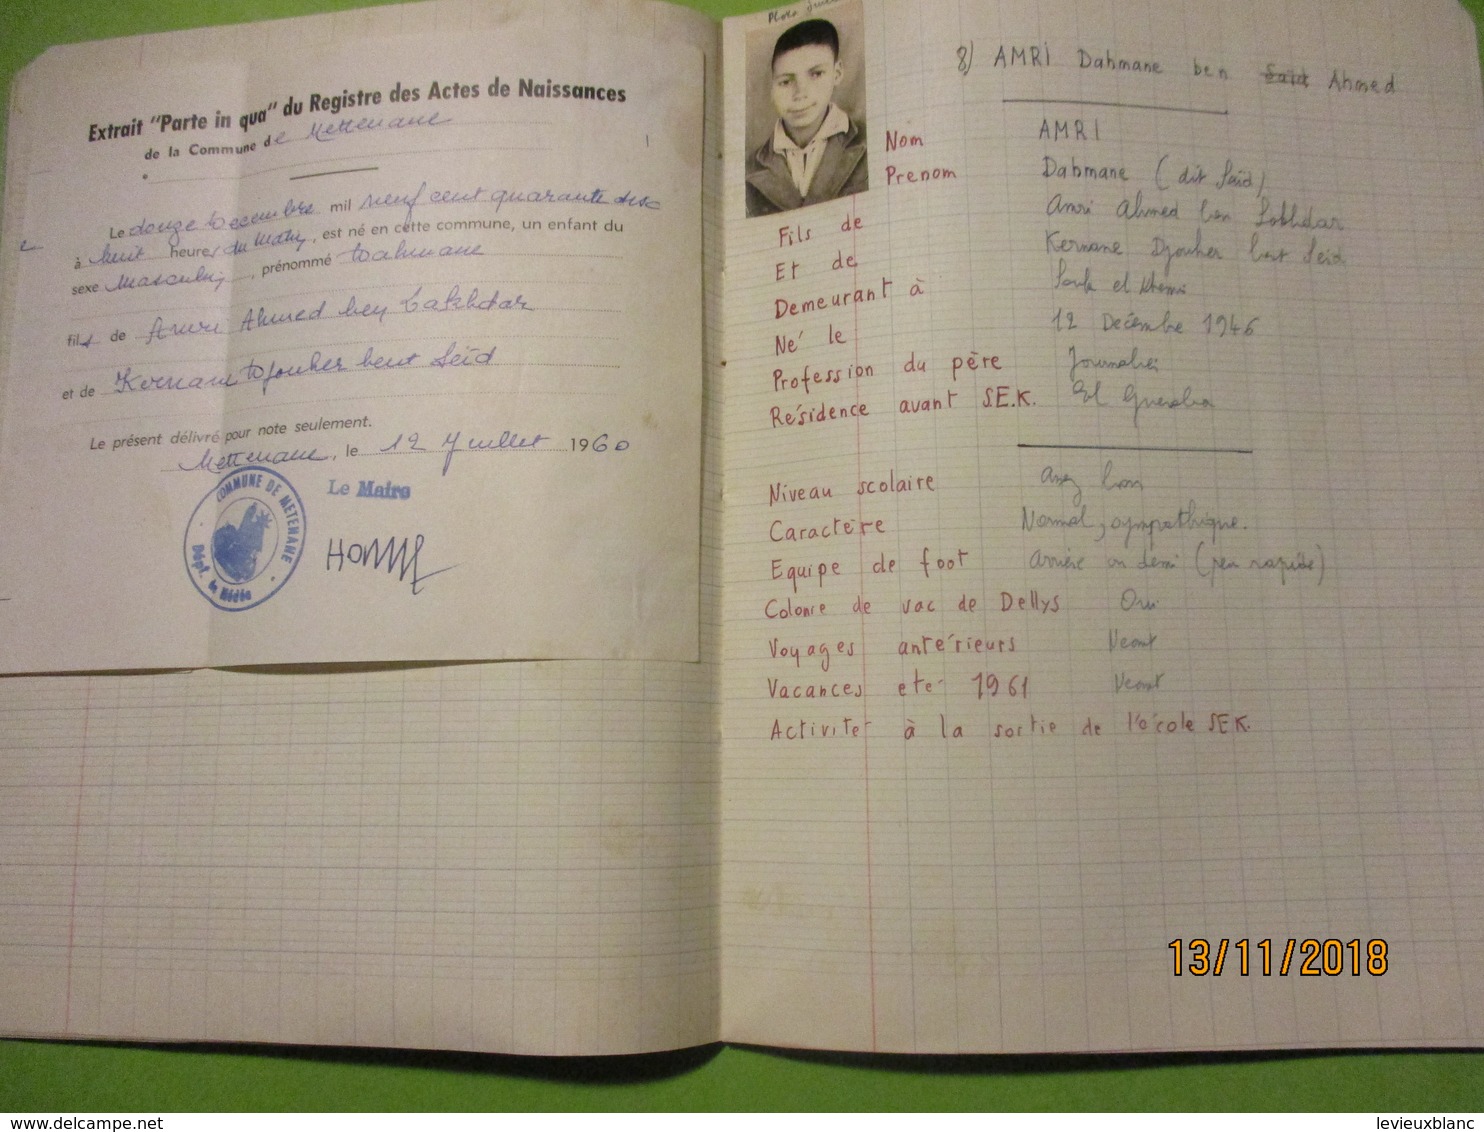 Extrait "Parte in qua" du Registre des Actes de Naissances
de la Commune de Mettenane
Le douze Décembre mil neuf cent quarante six
à huit heures du Matin, est né en cette commune, un enfant du
sexe Masculin, prénommé Dahmane
fils de Amri Ahmed ben Lakhdar
et de Kernane Djouher bent Seïd
Le présent délivré pour note seulement.
Mettenane, le 12 Juillet 1960
Le Maire
COMMUNE DE METENANE
Dépt. de Médéa
Photo
8) AMRI Dahmane ben Said Ahmed
Nom AMRI
Prenom Dahmane (dit Seïd)
Fils de Amri Ahmed ben Lakhdar
Et de Kernane Djouher bent Seïd
Demeurant à Souk el Khemis
Né le 12 Décembre 1946
Profession du père Journalier
Résidence avant S.E.K. El Gueraba
Niveau scolaire assez bon
Caractère Normal, sympathique.
Equipe de foot arrière ou demi (peu rapide)
Colonie de vac de Dellys Oui
Voyages antérieurs Neant
Vacances eté 1961 Neant
Activitér à la sortie de l'école SEK.
13/11/2018
www.delcampe.net
levieuxblanc